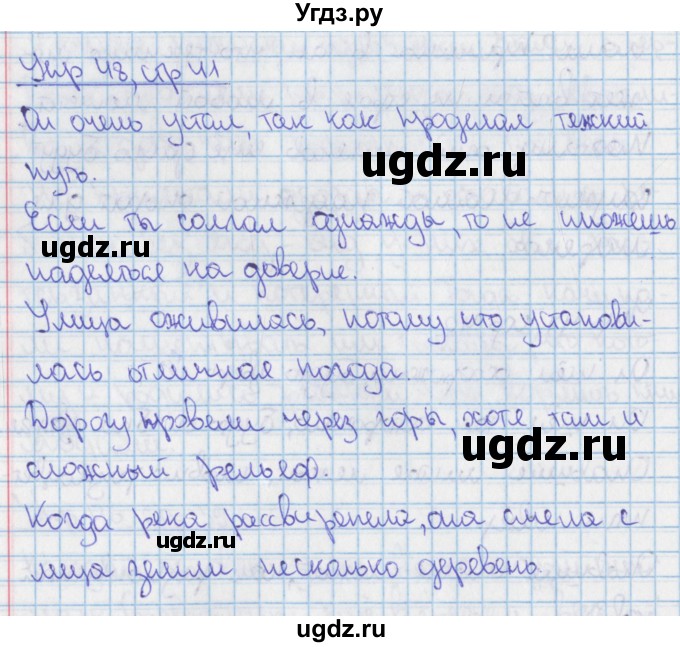 Угдз.ру
Упр 48, стр 41
Он очень устал, так как проделал тяжкий
ugdz.ru
путь.
Если ты солгал однажды, то не можешь
ugdz.ru
надеяться на доверие.
Улица оживилась, потому что установи-
лась отличная погода.
Дорогу провели через горы, хотя, там и
ugdz.ru
сложный рельеф.
Когда река рассвирепела, она смела с
ugdz.ru
лица земли несколько деревень
ugdz.ru